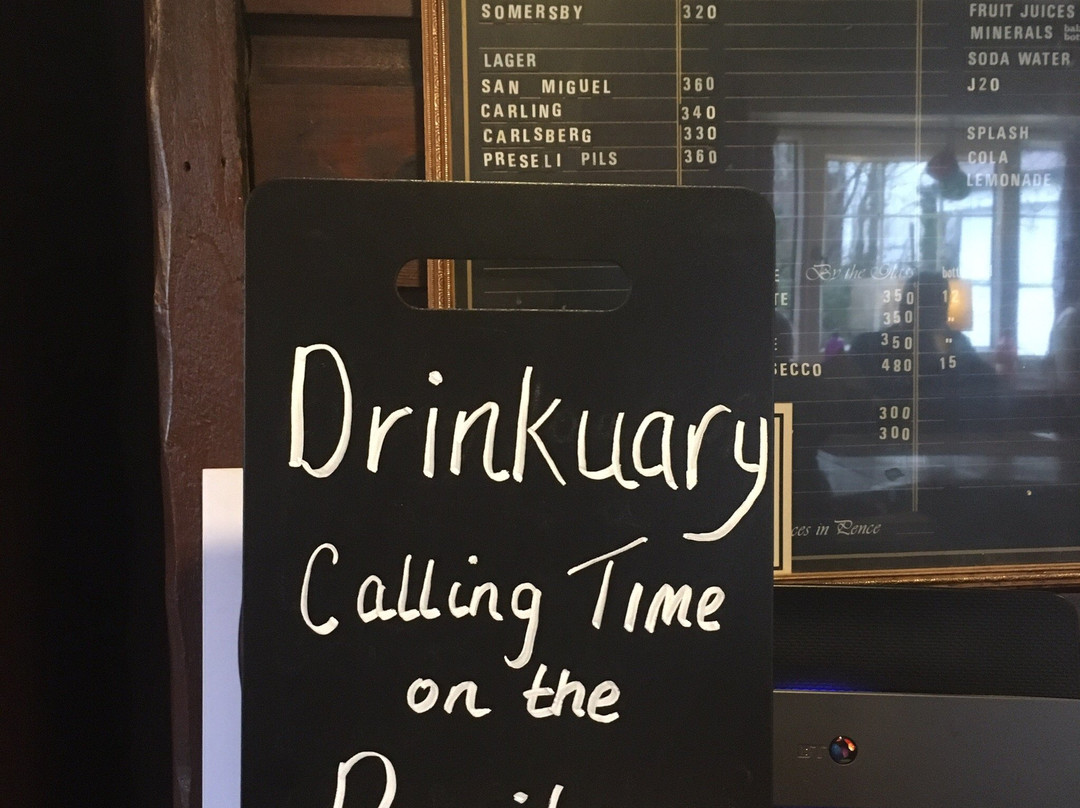 SOMERSBY 320
LAGER
SAN MIGUEL 360
CARLING 340
CARLSBERG 330
PRESELI PILS 360
FRUIT JUICES
MINERALS
SODA WATER
J2O
SPLASH
COLA
LEMONADE
By the Glass
350 12
350 "
350 "
480 15
300
300
in Pence
Drinkuary
Calling Time
on the
BT